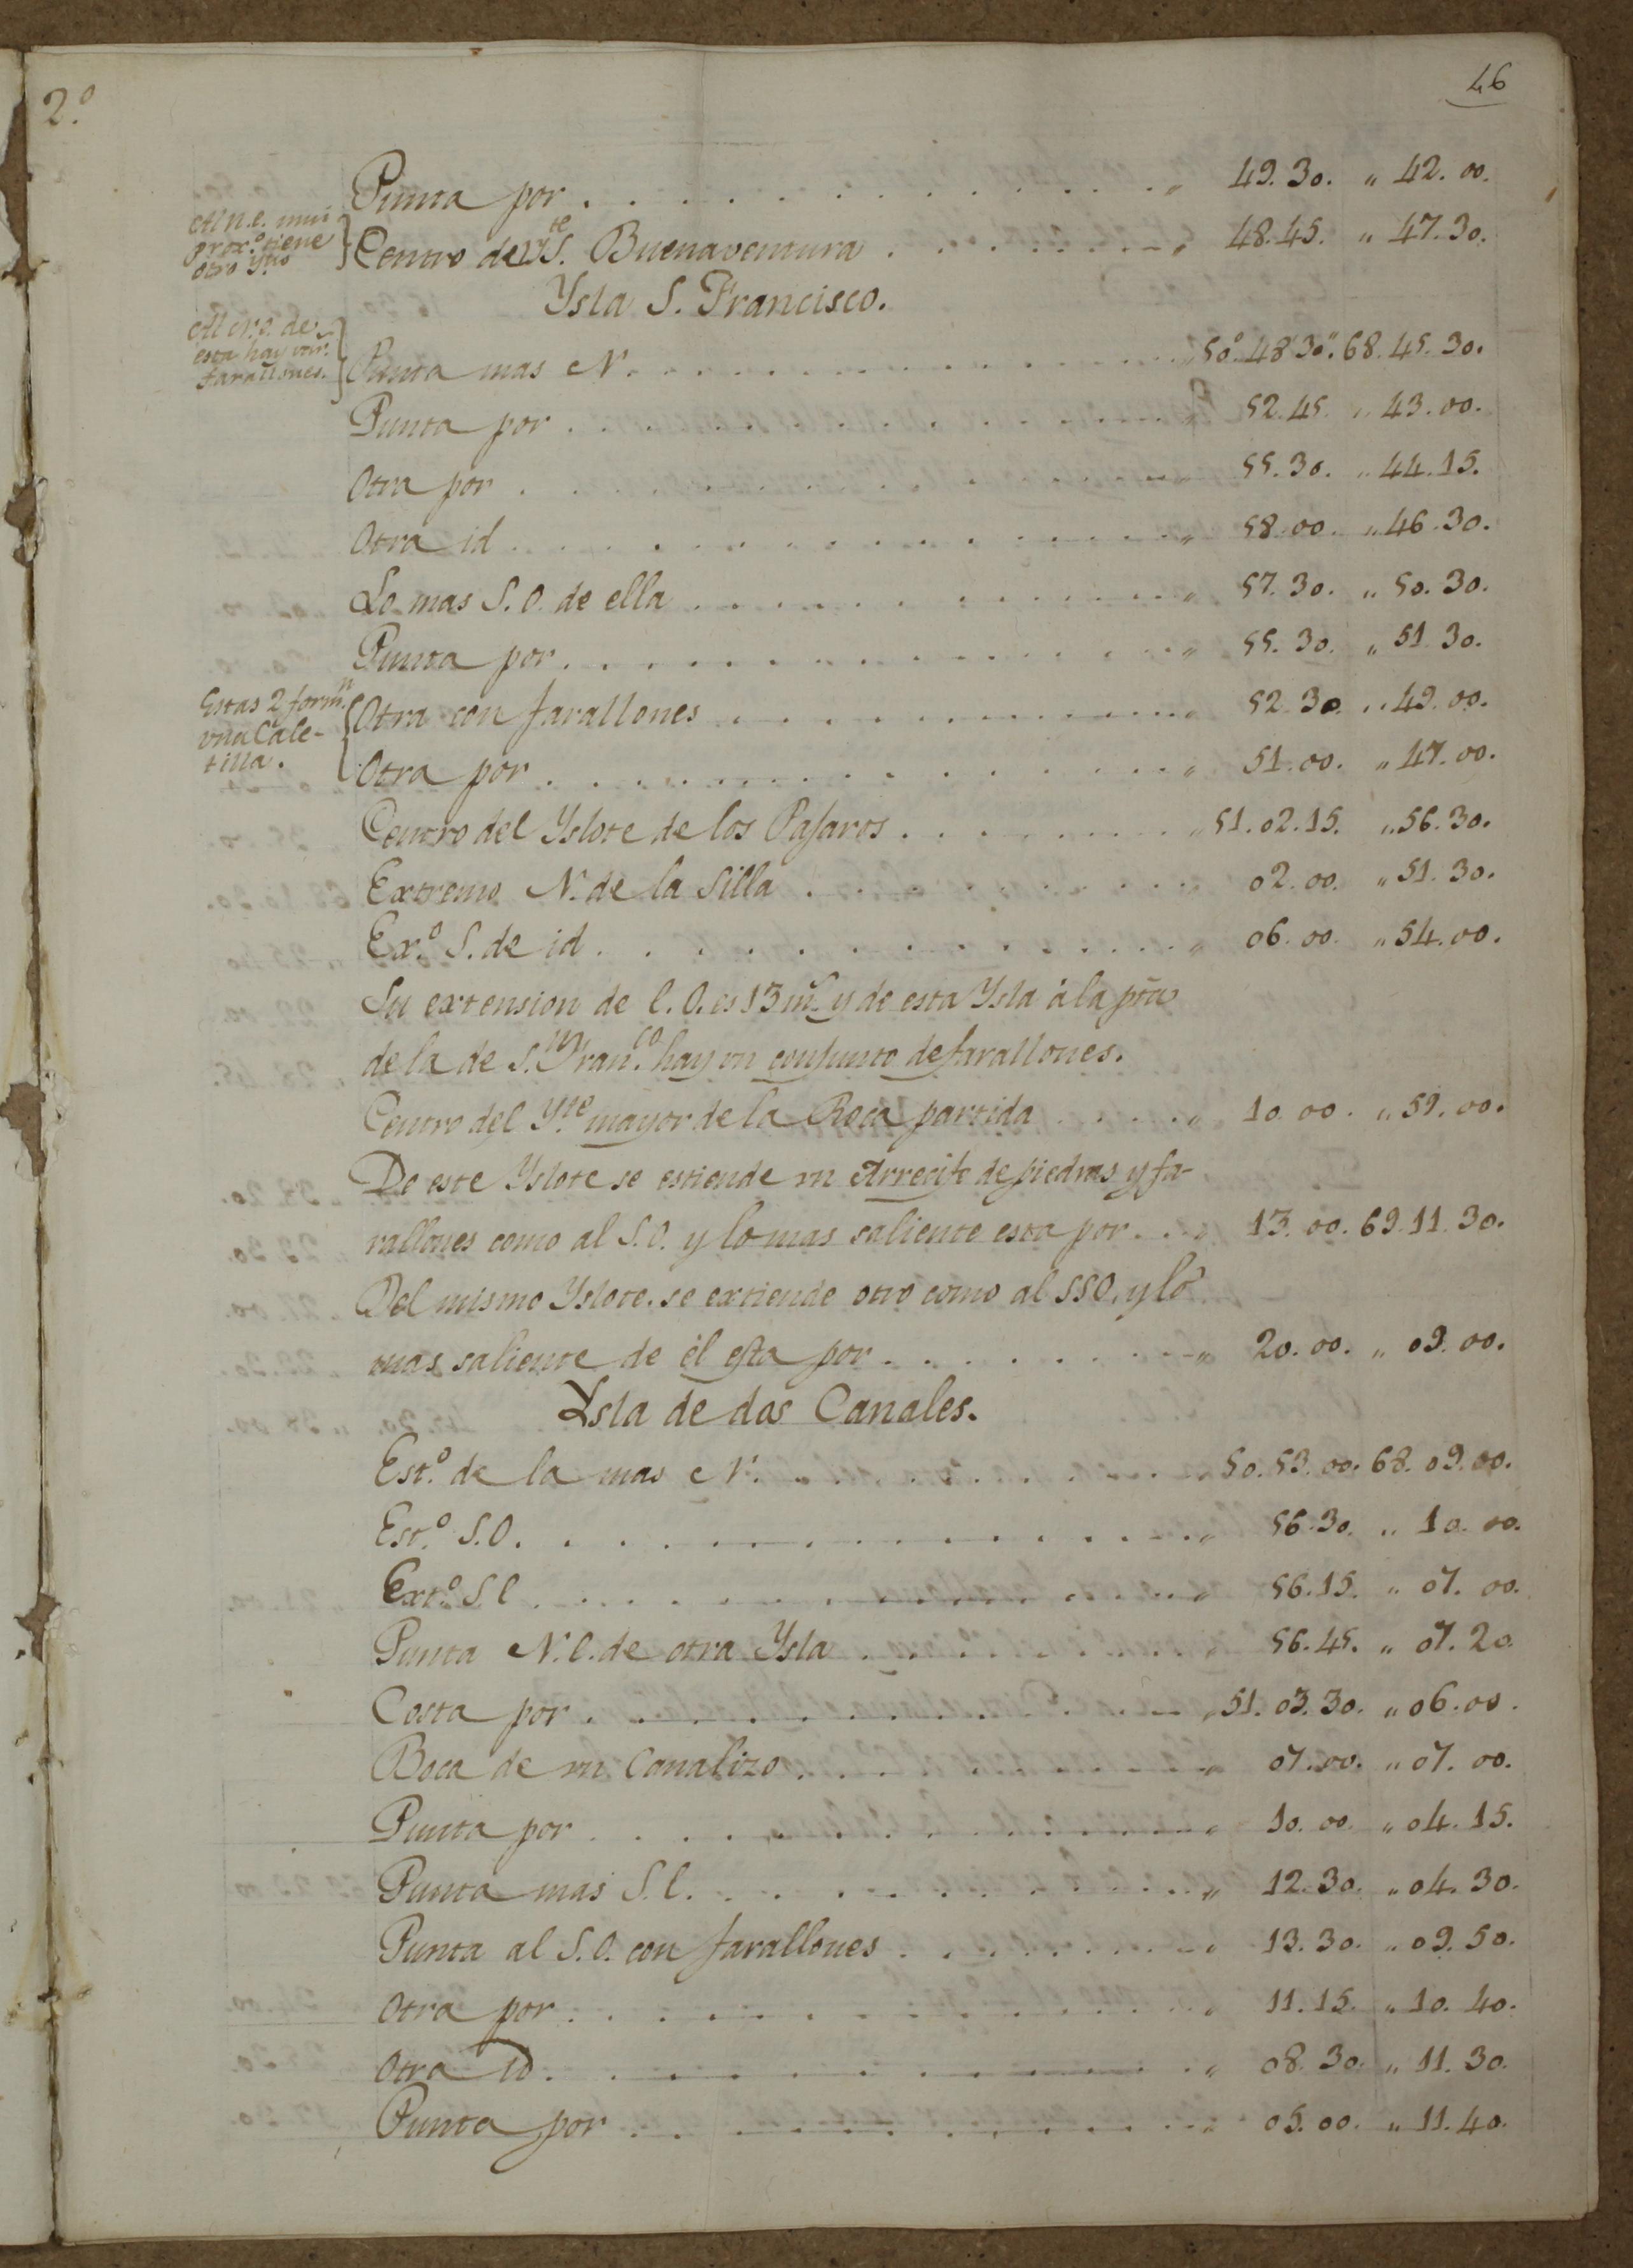 46
2.º
Punta por . . . . . . . . . . . . „ 49. 30. „ 42. 00.
Al N.E. mui
prox.º tiene
otro Y.te
Centro del Y.te S. Buenaventura . . . . . . . „ 48. 45. „ 47. 30.
Ysla S. Francisco.
Al N.O. de
esta hay var.s
farallones.
Punta mas N. . . . . . . . . . . . . „ 50º. 48' 30". 68. 45. 30.
Punta por . . . . . . . . . . . . „ 52. 45. „ 43. 00.
Otra por . . . . . . . . . . . . „ 55. 30. „ 44. 15.
Otra id . . . . . . . . . . . . „ 58. 00. „ 46. 30.
Lo mas S. O. de ella . . . . . . . . . . „ 57. 30. „ 50. 30.
Punta por . . . . . . . . . . . . „ 55. 30. „ 51. 30.
Estas 2 form.n
una Cale-
tilla.
Otra con farallones . . . . . . . . . . „ 52. 30. „ 49. 00.
Otra por . . . . . . . . . . . . „ 51. 00. „ 47. 00.
Centro del Yslote de los Pajaros . . . . . . . „ 51. 02. 15. „ 56. 30.
Extremo N. de la Silla . . . . . . . . . „ 02. 00. „ 51. 30.
Ex.º S. de id . . . . . . . . . . . . „ 06. 00. „ 54. 00.
Su extension de E. O. es 13 m.s y de esta Ysla à la pta
de la de S.n Fran.co hay un conjunto de farallones.
Centro del Y.te mayor de la Roca partida . . . . . „ 10. 00. „ 59. 00.
De este Yslote se estiende un Arrecife de piedras y fa-
rallones como al S. O. y lo mas saliente esta por . . „ 13. 00. 69. 11. 30.
Del mismo Yslote se extiende otro como al SSO. y lo
mas saliente de èl esta por . . . . . . . . „ 20. 00. „ 09. 00.
Ysla de dos Canales.
Est.º de la mas N. . . . . . . . . . . „ 50. 53. 00. 68. 09. 00.
Est.º S. O. . . . . . . . . . . . . „ 56. 30. „ 10. 00.
Ext.º S E . . . . . . . . . . . . „ 56. 15. „ 07. 00.
Punta N. E. de otra Ysla . . . . . . . . „ 56. 45. „ 07. 20.
Costa por . . . . . . . . . . . . „ 51. 03. 30. „ 06. 00.
Boca de un Canalizo . . . . . . . . . „ 07. 00. „ 07. 00.
Punta por . . . . . . . . . . . . „ 10. 00. „ 04. 15.
Punta mas S. E. . . . . . . . . . . . „ 12. 30. „ 04. 30.
Punta al S. O. con farallones . . . . . . . „ 13. 30. „ 09. 50.
Otra por . . . . . . . . . . . . „ 11. 15. „ 10. 40.
Otra id . . . . . . . . . . . . „ 08. 30. „ 11. 30.
Punta por . . . . . . . . . . . . „ 05. 00. „ 11. 40.